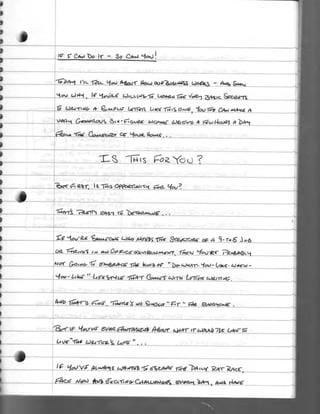 IF I CAN DO IT - SO CAN YOU!
TODAY I'LL TELL YOU ABOUT HOW OUR BUSINESS WORKS - AND SHOW
YOU WHY, IF YOU'RE WILLING TO LEARN THE VERY BASIC SECRETS
TO WRITING A SIMPLE LETTER LIKE THIS ONE, YOU TOO CAN MAKE A
VERY GENEROUS SIX-FIGURE INCOME WRITING A FEW HOURS A DAY
FROM THE COMFORT OF YOUR HOME...
IS THIS FOR YOU?
BUT FIRST, IS THIS OPPORTUNITY FOR YOU?
THAT'S PRETTY EASY TO DETERMINE...
IF YOU'RE SOMEONE WHO NEEDS THE STRUCTURE OF A 9-TO-5 JOB
OR THRIVES IN AN OFFICE ENVIRONMENT, THEN YOU'RE PROBABLY
NOT GOING TO EMBRACE THE KIND OF "DO-WHAT-YOU-LIKE-WHEN-
YOU-LIKE" LIFESTYLE THAT COMES WITH LETTER WRITING.
AND THAT'S FINE. THERE'S NO SINGLE "FIT" FOR EVERYONE.
BUT IF YOU'VE EVER FANTASIZED ABOUT WHAT IT WOULD BE LIKE TO
LIVE "THE WRITER'S LIFE"...
IF YOU'VE ALWAYS WANTED TO ESCAPE THE DAILY RAT RACE,
FACE NEW AND EXCITING CHALLENGES EVERY DAY, AND HAVE